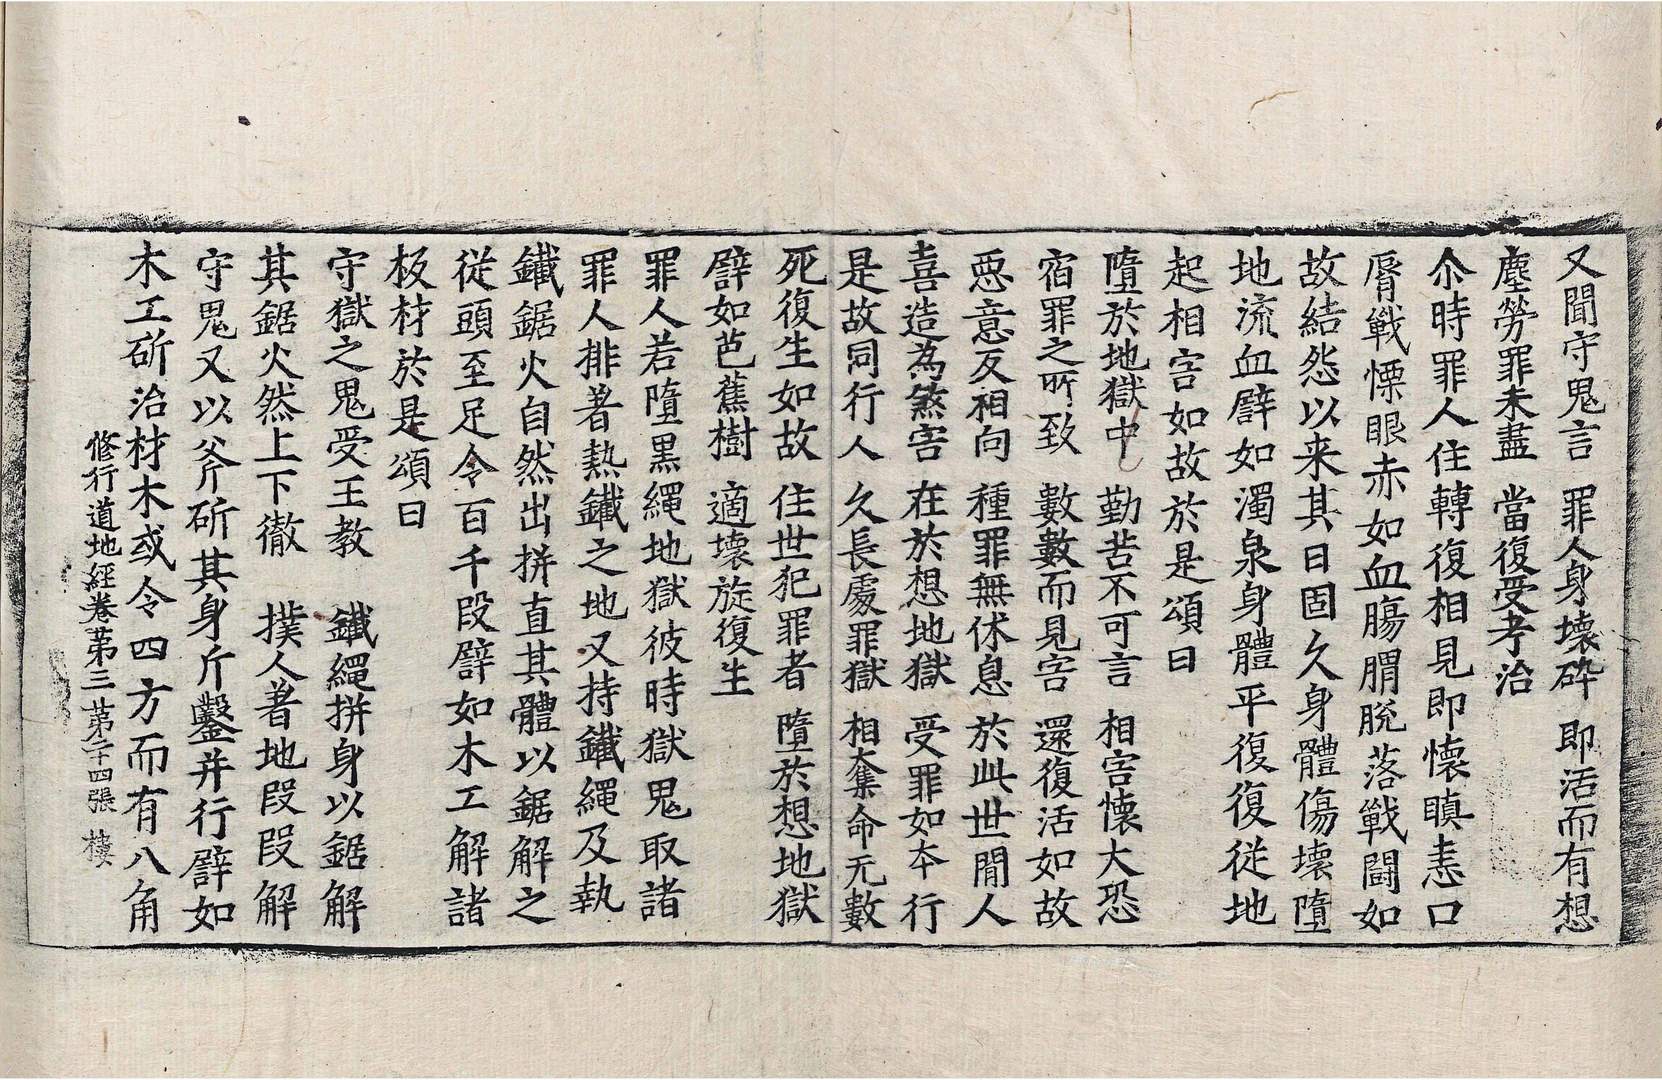 又聞守鬼言　罪人身壞碎　即活而有想
塵勞罪未盡　當復受考治
尒時罪人住轉復相見即懷瞋恚口
脣戰慄眼赤如血腸𦞅脫落戰鬪如
故結怨以来其日固久身體傷壞墮
地流血譬如濁泉身體平復復從地
起相害如故於是頌曰
墮於地獄中　勤苦不可言　相害懷大恐
宿罪之所致　數數而見害　還復活如故
惡意反相向　種罪無休息　於此世間人
喜造為煞害　在於想地獄　受罪如夲行
是故同行人　久長處罪獄　相奪命无數
死復生如故　住世犯罪者　墮於想地獄
譬如芭蕉樹　適壞旋復生
罪人若墮黑繩地獄彼時獄鬼取諸
罪人排著熱鐵之地又持鐵繩及執
鐵鋸火自然出拼直其體以鋸解之
從頭至足令百千段譬如木工解諸
板材於是頌曰
守獄之鬼受王教　鐵繩拼身以鋸解
其鋸火然上下徹　撲人著地段段解
守鬼又以斧斫其身斤鑿并行譬如
木工斫治材木或令四方而有八角
修行道地經卷第三　第二十四張　樓